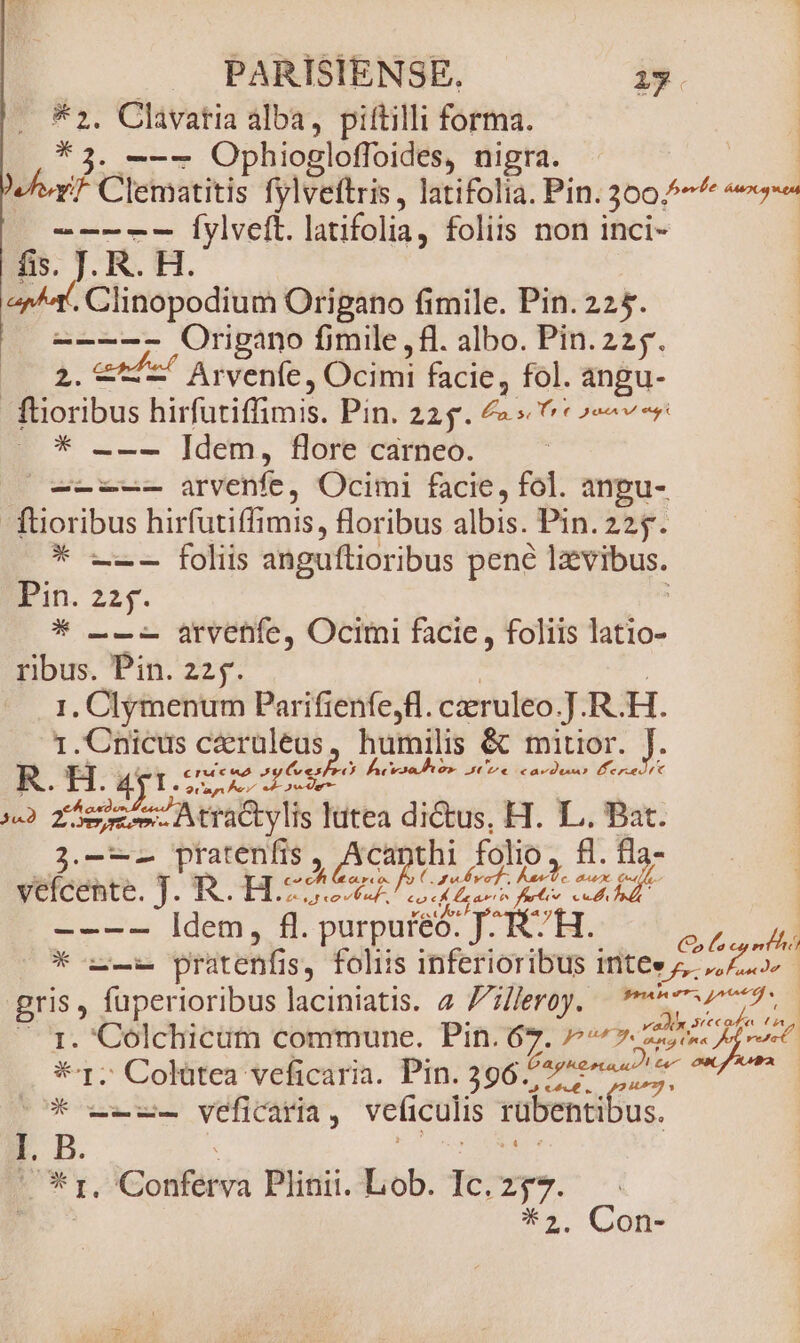 PARISIENSE. 17
*2. Clavaria alba, piſtilli forma.
*3. --- Ophiogloſſoides, nigra.
Clematitis ſylveſtris, latifolia. Pin. 300.
----- ſylveſt. latifolia, foliis non inci-
ſis. J. R. H.
Clinopodium Origano ſimile. Pin. 225.
----- Origano ſimile, fl. albo. Pin. 225.
2. --- Arvenſe, Ocimi facie, fol. angu-
ſtioribus hirſutiſſimis. Pin. 225.
* --- Idem, flore carneo.
----- arvenſe, Ocimi facie, fol. angu-
ſtioribus hirſutiſſimis, floribus albis. Pin. 225.
* --- foliis anguſtioribus penè lævibus.
Pin. 225.
* --- arvenſe, Ocimi facie, foliis latio-
ribus. Pin. 225.
1. Clymenum Pariſienſe, fl. cæruleo. J. R. H.
1. Cnicus cæruleus, humilis & mitior. J.
R. H. 451.
2. Atractylis lutea dictus. H. L. Bat.
3. --- pratenſis, Acanthi folio, fl. fla-
veſcente. J. R. H.
---- Idem, fl. purpureo. J. R. H.
* --- pratenſis, foliis inferioribus inte-
gris, ſuperioribus laciniatis. a Villeroy.
1. Colchicum commune. Pin. 67.
*1. Colutea veſicaria. Pin. 396.
* ---- veſicaria, veſiculis rubentibus.
I. B.
*1. Conferva Plinii. Lob. Ic. 257.
*2. Con-